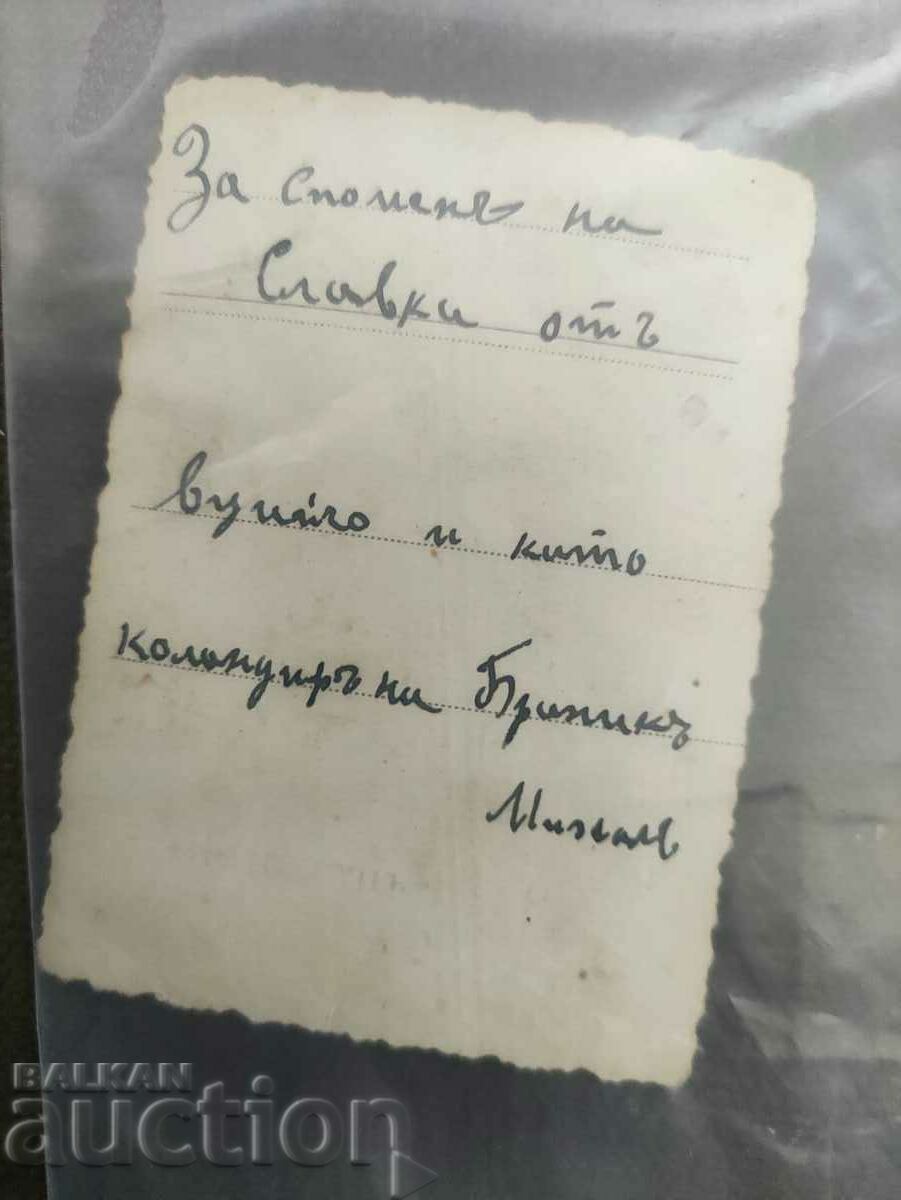 За споменъ на
Славка отъ
вуйчо и като
командиръ на Бранникъ
BALKAN
auction